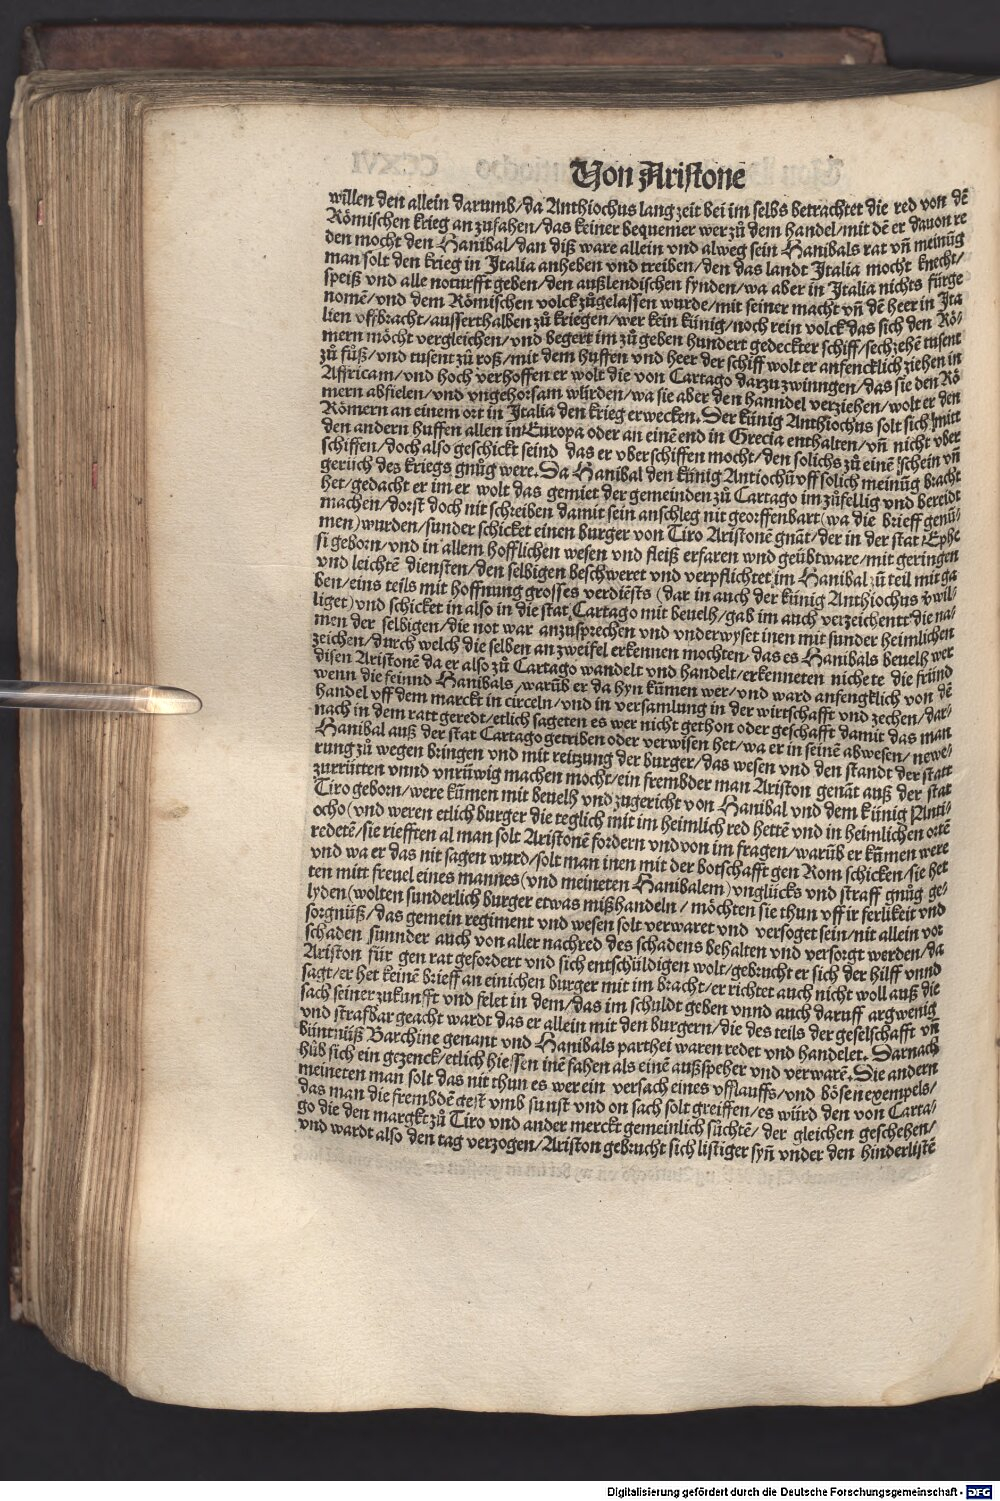 Von Aristone
willen den allein darumb/da Anthiochus lang zeit bei im selbs betrachtet die red von dē
Römischen krieg an zufahen/das keiner bequemer wer zů dem handel/mit dē er dauon re
den mocht den Hanibal/dan diß ware allein vnd alweg sein Hanibals rat vñ meinūg
man solt den krieg in Italia anheben vnd treiben/den das landt Italia mocht knecht/
speiß vnd alle noturfft geben/den außlendischen fynden/wa aber in Italia nichts fürge
nomē/vnd dem Römischen volck zůgelassen wurde/mit seiner macht vñ dē heer in Ita
lien vffbracht/ausserthalben zů kriegen/wer kein künig/noch rein volck das sich den Rö⸗
mern möcht vergleichen/vnd begert im zů geben hundert gedeckter schiff/sechzehē tusent
zů fůß/vnd tusent zů roß/mit dem huffen vnd heer der schiff wolt er anfencklich ziehen in
Affricam/vnd hoch verhoffen er wolt die von Cartago darzu zwinngen/das sie den Rö
mern abfielen/vnd vngehorsam würden/wa sie aber den hanndel verziehen/wolt er den
Römern an einem ort in Italia den krieg erwecken. Der künig Anthiochus solt sich mitt
den andern huffen allen in Europa oder an einē end in Grecia enthalten/vñ nicht vber
schiffen/doch also geschickt seind das er vber schiffen mocht/den solichs zů einē schein vñ
gerüch des kriegs gnůg were. Da Hanibal den künig Antiochū vff solich meinūg bracht
het/gedacht er im er wolt das gemiet der gemeinden zů Cartago im zůfellig vnd bereidt
machen/dorst doch nit schreiben damit sein anschleg nit geoffenbart (wa die brieff genū⸗
men) wurden/sunder schicket einen burger von Tiro Aristonē gnāt/der in der stat Ephe
si geborn/vnd in allem hofflichen wesen vnd fleiß erfaren wnd geübt ware/mit geringen
vnd leichtē diensten/den selbigen beschweret vnd verpflichtet im Hanibal zů teil mit ga
ben/eins teils mit hoffnung grosses verdiēsts (dar in auch der künig Anthiochus v̄wil⸗
liget) vnd schicket in also in die stat Cartago mit beuelh/gab im auch verzeichentt die na⸗
men der selbigen/die not war anzusprechen vnd vnderwyset inen mit sunder heimlichen
zeichen/durch welch die selben an zweifel erkennen mochten/das es Hanibals beuelh wer
disen Aristonē da er also zů Cartago wandelt vnd handelt/erkenneten nich ete die fründ
wenn die feinnd Hanibals/warūb er da hyn kūmen wer/vnd ward anfengklich von dē
handel vff dem marckt in circeln/vnd in versamlung in der wirtschafft vnd zechen/dar⸗
nach in dem ratt geredt/etlich sageten es wer nicht gethon oder geschafft damit das man
Hanibal auß der stat Cartago getriben oder verwisen het/wa er in seinē abwesen/newe⸗
rung zů wegen bringen vnd mit reitzung der burger/das wesen vnd den standt der statt
zurrütten vnnd vnrüwig machen mocht/ein frembder man Ariston genāt auß der stat
Tiro geborn/were kūmen mit beuelh vnd zugericht von Hanibal vnd dem künig Anti⸗
ocho (vnd weren etlich burger die teglich mit im heimlich red hettē vnd in heimlichen ortē
redetē/sie riefften al man solt Aristonē fordern vnd von im fragen/warūb er kūmen were
vnd wa er das nit sagen wurd/solt man inen mit der botschafft gen Rom schicken/sie het
ten mitt freuel eines mannes (vnd meineten Hanibalem) vnglücks vnd straff gnůg ge⸗
lyden (wolten sunderlich burger etwas mißhandeln / möchten sie thun vff ir ferlikeit vnd
sorgnüß/das gemein regiment vnd wesen solt verwaret vnd versoget sein/nit allein vor
schaden sunnder auch von aller nachred des schadens behalten vnd versorgt werden/da
Ariston für gen rat gefordert vnd sich entschüldigen wolt/gebrucht er sich der hilff vnnd
sagt/er het keinē brieff an einichen burger mit im bracht/er richtet auch nicht woll auß die
sach seiner zukunfft vnd felet in dem/das im schuldt geben vnnd auch daruff argwenig
vnd strafbar geacht wardt das er allein mit den burgern/die des teils der geselschafft vñ
büntnüß Barchine genant vnd Hanibals parthei waren redet vnd handelet. Darnach
hůb sich ein gezenck/etlich hiessen inē fahen als einē außspeher vnd verwarē. Die andern
meineten man solt das nit thun es wer ein versach eines vfflauffs/vnd bösen exempels/
das man die frembdē gest vmb sunst vnd on sach solt greiffen/es würd den von Carta⸗
go die den margkt zů Tiro vnd ander merckt gemeinlich süchtē/ der gleichen geschehen/
vnd wardt also den tag verzogen/Ariston gebrucht sich listiger syñ vnder den hinderlistē
Digitalisierung gefördert durch die Deutsche Forschungsgemeinschaft - DFG